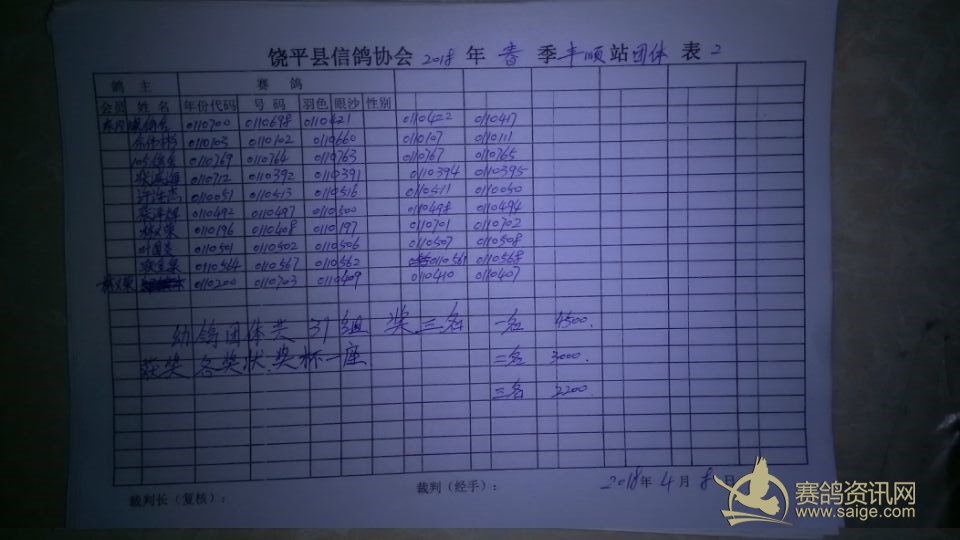 饶平县信鸽协会 2018 年 春 季 丰顺 站 团体 表 2
鸽 主 赛 鸽
会员 姓 名 年份代码 号 码 羽色 眼沙 性别
0110700 0110698 0110421 0110422 0110417
0110103 0110102 0110660 0110107 0110111
0110769 0110764 0110763 0110767 0110765
0110712 0110392 0110391 0110394 0110395
0110051 0110513 0110516 0110511 0110050
0110492 0110497 0110500 0110498 0110494
0110196 0110408 0110197 0110701 0110702
0110501 0110502 0110506 0110507 0110508
0110564 0110567 0110562 0110561 0110568
0110200 0110703 0110409 0110410 0110407
幼鸽团体共 37组 奖三名 一名 4500.
获奖各奖状.奖杯一座 二名 3000.
三名 2200.
裁判长（复核）： 裁判（经手）： 2018 年 4 月 8 日
赛鸽资讯网
www.saige.com